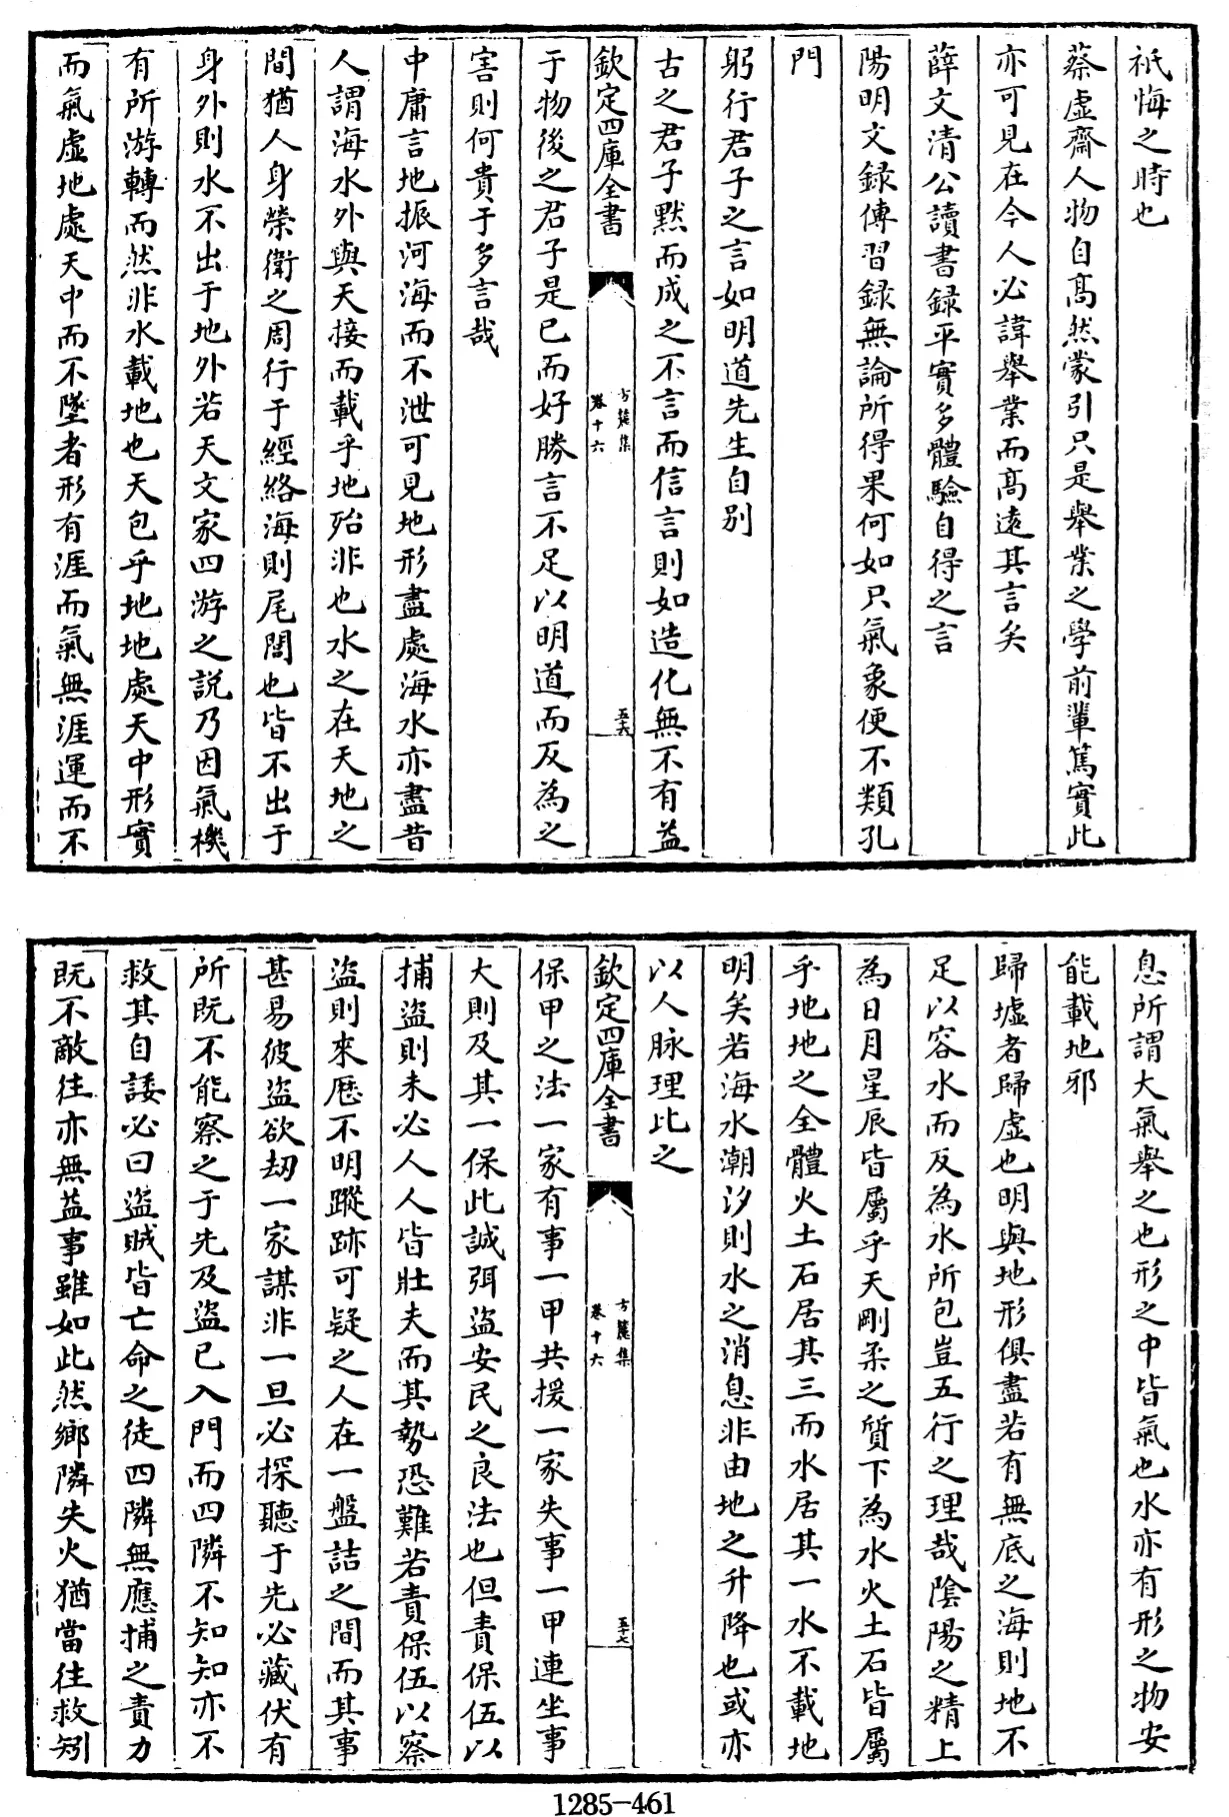 祇悔之時也
蔡虛齋人物自髙然蒙引只是舉業之學前輩篤實此
亦可見在今人必諱舉業而髙遠其言矣
薛文清公讀書録平實多體驗自得之言
陽明文録傳習録無論所得果何如只氣象便不類孔
門
躬行君子之言如明道先生自别
古之君子黙而成之不言而信言則如造化無不有益
欽定四庫全書
方麓集
卷十六
五十六
于物後之君子是已而好勝言不足以明道而反為之
害則何貴于多言哉
中庸言地振河海而不泄可見地形盡處海水亦盡昔
人謂海水外與天接而載乎地殆非也水之在天地之
間猶人身榮衛之周行于經絡海則尾閭也皆不出于
身外則水不出于地外若天文家四游之説乃因氣機
有所游轉而然非水載地也天包乎地地處天中形實
而氣虛地處天中而不墜者形有涯而氣無涯運而不
息所謂大氣舉之也形之中皆氣也水亦有形之物安
能載地邪
歸墟者歸虛也明與地形俱盡若有無底之海則地不
足以容水而反為水所包豈五行之理哉陰陽之精上
為日月星辰皆屬乎天剛柔之質下為水火土石皆屬
乎地地之全體火土石居其三而水居其一水不載地
明矣若海水潮汐則水之消息非由地之升降也或亦
以人脉理比之
欽定四庫全書
方麓集
卷十六
五十七
保甲之法一家有事一甲共援一家失事一甲連坐事
大則及其一保此誠弭盜安民之良法也但責保伍以
捕盜則未必人人皆壯夫而其勢恐難若責保伍以察
盜則來厯不明蹤跡可疑之人在一盤詰之間而其事
甚易彼盜欲刼一家謀非一旦必探聽于先必藏伏有
所既不能察之于先及盜已入門而四隣不知知亦不
救其自諉必曰盜賊皆亡命之徒四隣無應捕之責力
既不敵往亦無益事雖如此然鄉隣失火猶當往救矧
1285-461